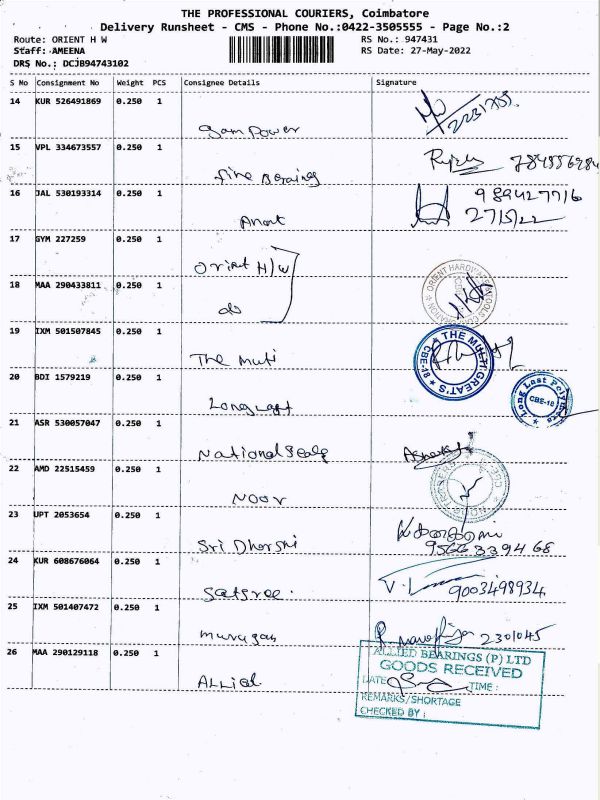 THE PROFESSIONAL COURIERS, Coimbatore
Delivery Runsheet - CMS - Phone No.:0422-3505555 - Page No.:2
Route: ORIENT H W RS No.: 947431
Staff: AMEENA RS Date: 27-May-2022
DRS No.: DCJB94743102
S No Consignment No Weight PCS Consignee Details Signature
14 KUR 526491869 0.250 1
Gam Power
15 VPL 334673557 0.250 1
fine Bearings
16 JAL 530193314 0.250 1 989427716
Anant 27/5/22
17 GYM 227259 0.250 1
Orient H/W
18 MAA 290433811 0.250 1
do
ORIENT HARDWARE
19 IXM 501507845 0.250 1
The Multi
THE MULTI GREAT'S
20 BDI 1579219 0.250 1
Long Last
Long Last Polymers
CBE-18
21 ASR 530057047 0.250 1
National Seals
22 AMD 22515459 0.250 1
NOOR
23 UPT 2053654 0.250 1
Sri Dharshi 9566339468
24 KUR 608676064 0.250 1
9003498934
25 IXM 501407472 0.250 1
murugan 2301045
26 MAA 290129118 0.250 1
ALLied
ALLIED BEARINGS (P) LTD
GOODS RECEIVED
DATE TIME :
REMARKS/SHORTAGE
CHECKED BY :